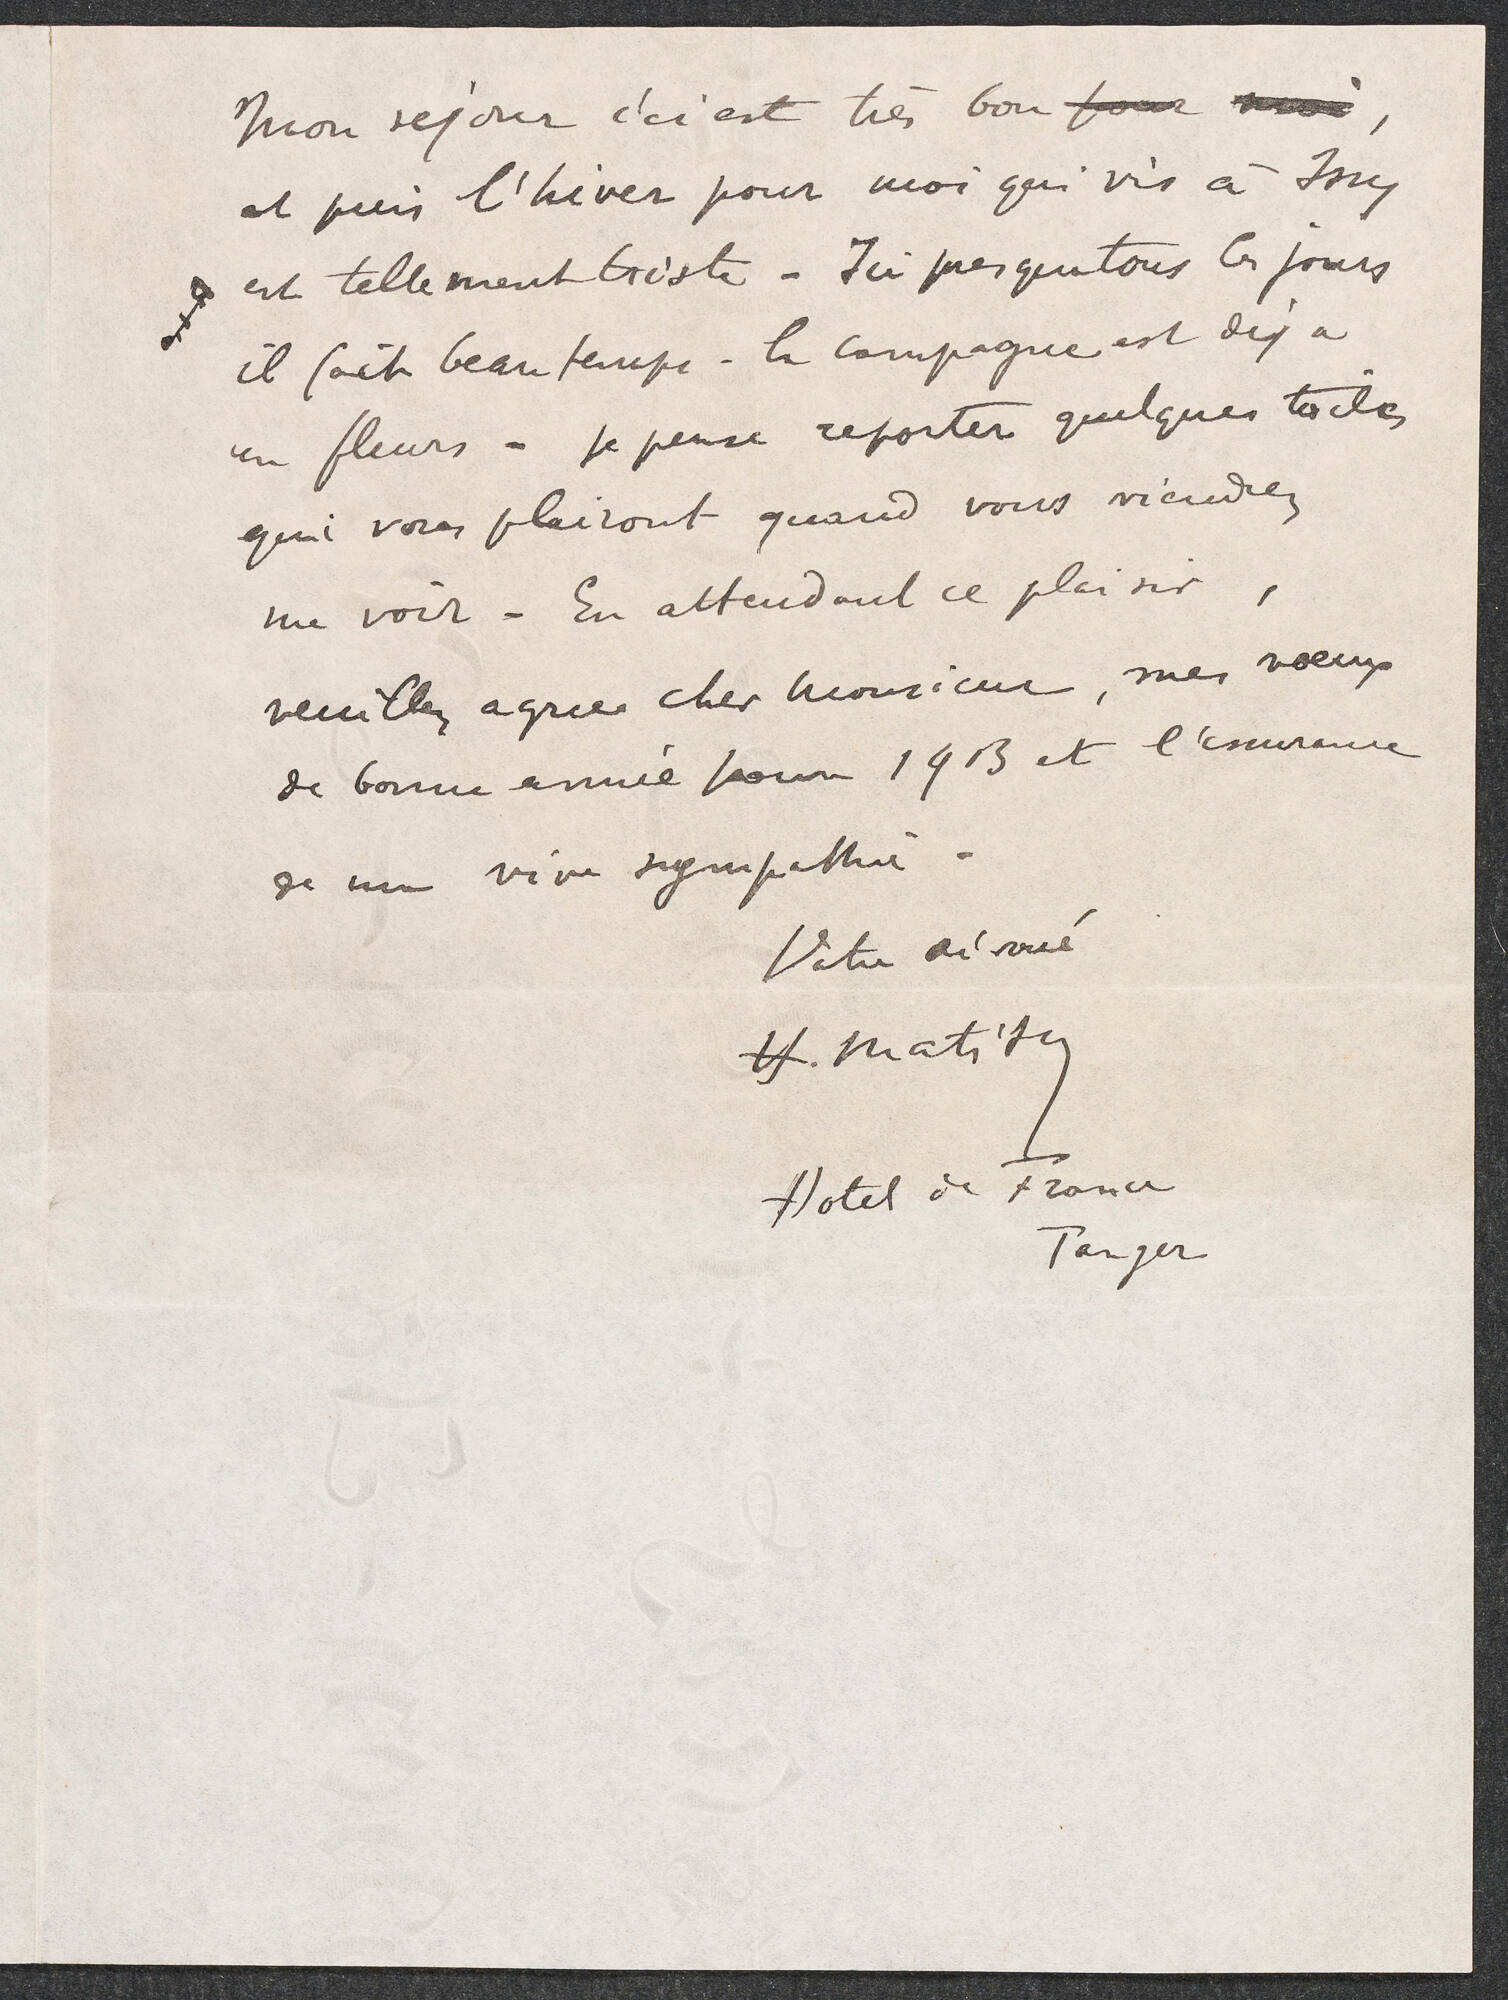 Mon séjour ici est très bon pour moi,
et puis l'hiver pour moi qui vis à Issy
est tellement triste - Ici presque tous les jours
il fait beau temps - la campagne est déjà
en fleurs - je pense reporter quelques toiles
qui vous plairont quand vous viendrez
me voir - En attendant ce plaisir,
veuillez agréer cher Monsieur, mes voeux
de bonne année pour 1913 et l'assurance
de ma vive sympathie -
Votre dévoué
H. Matisse
Hotel de France
Tanger